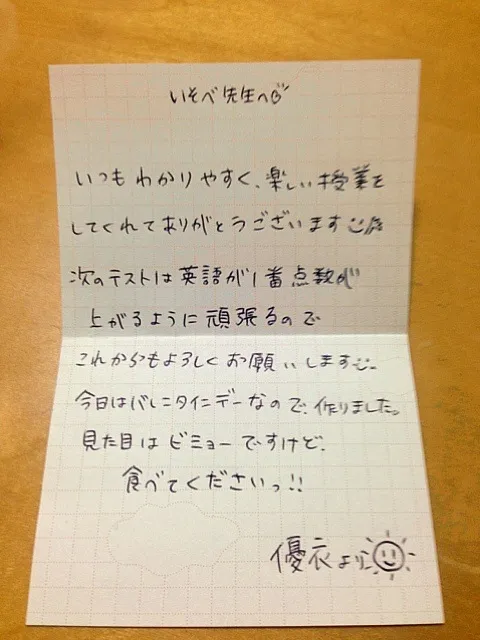 いそべ先生へ
いつもわかりやすく、楽しい授業を
してくれてありがとうございます
次のテストは英語が1番点数が
上がるように頑張るので
これからもよろしくお願いします
今日はバレニタイニデーなので、作りました。
見た目はビミョーですけど、
食べてくださいっ!!
優衣より